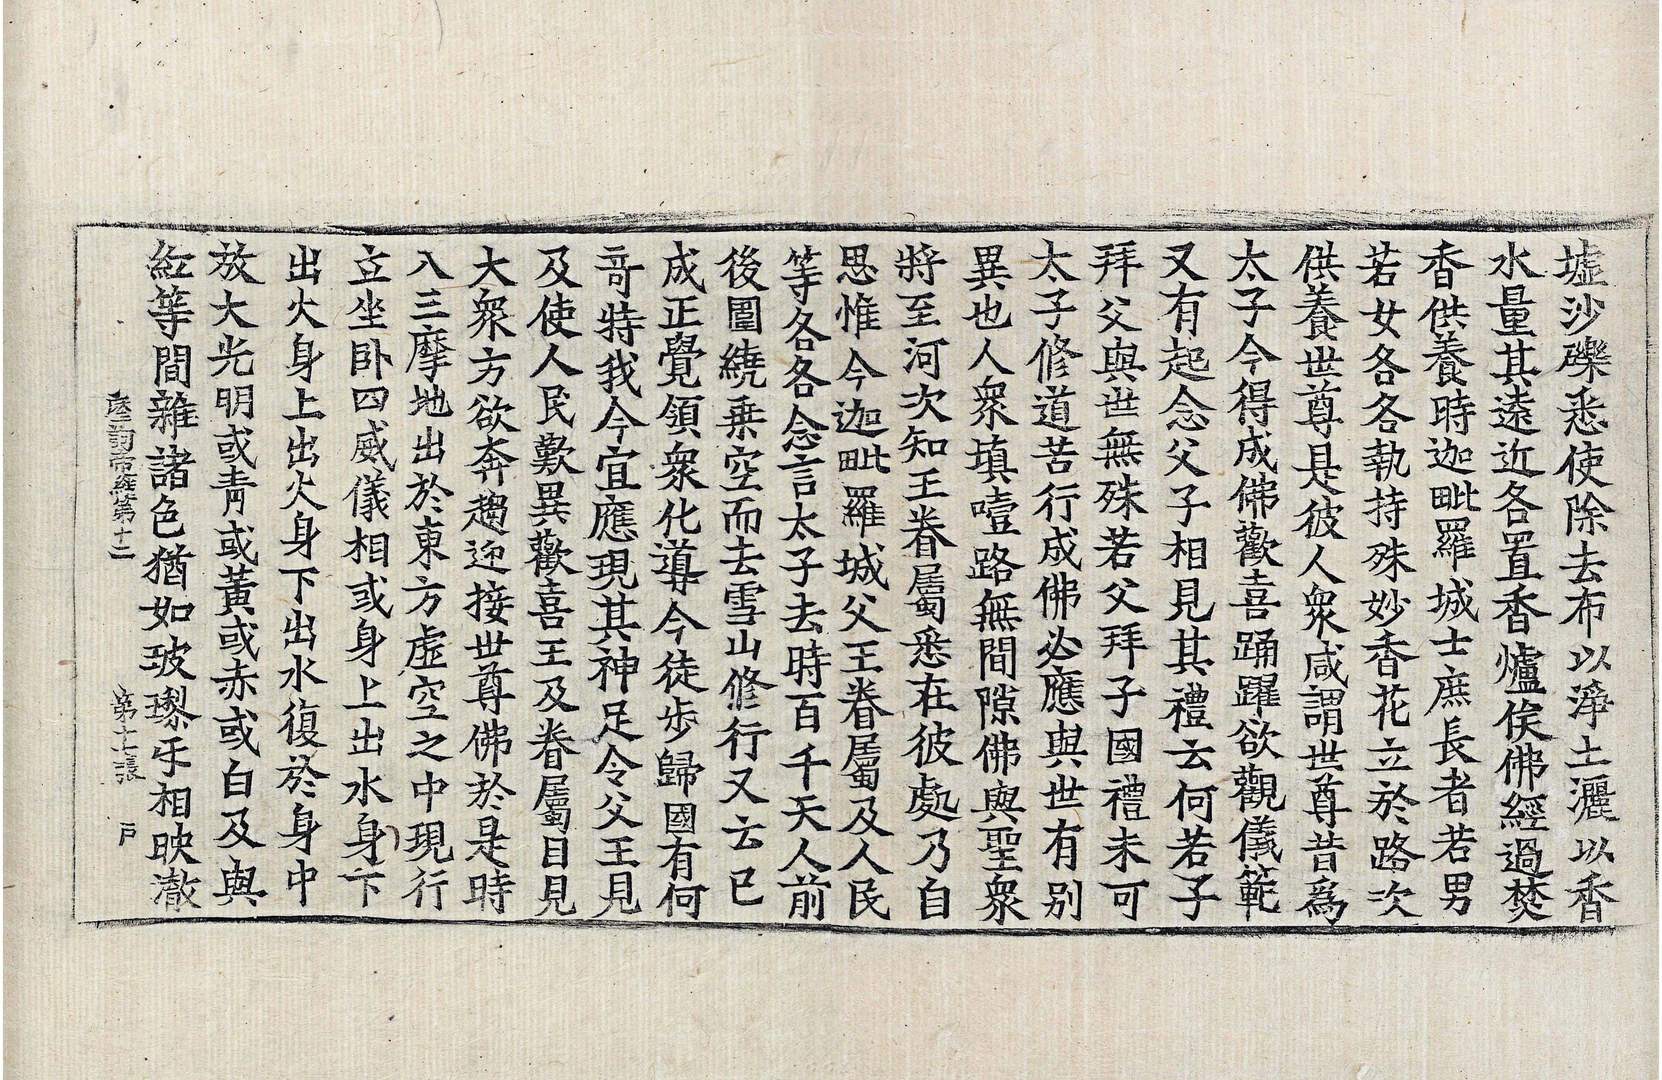 墟沙礫悉使除去布以淨土灑以香
水量其遠近各置香爐俟佛經過焚
香供養時迦毗羅城士庶長者若男
若女各各執持殊妙香花立於路次
供養世尊是彼人衆咸謂世尊昔爲
太子今得成佛歡喜踊躍欲觀儀範
又有起念父子相見其禮云何若子
拜父與世無殊若父拜子國禮未可
太子修道苦行成佛必應與世有別
異也人衆填噎路無間隙佛與聖衆
將至河次知王眷屬悉在彼處乃自
思惟今迦毗羅城父王眷屬及人民
等各各念言太子去時百千天人前
後圍繞乗空而去雪山修行又云已
成正覺領衆化導今徒步歸國有何
奇特我今宜應現其神足令父王見
及使人民歎異歡喜王及眷屬目見
大衆方欲奔趨迎接世尊佛於是時
入三摩地出於東方虛空之中現行
立坐卧四威儀相或身上出水身下
出火身上出火身下出水復於身中
放大光明或青或黃或赤或白及與
紅等間雜諸色猶如玻瓈牙相映澈
第十二 第十二張 戸